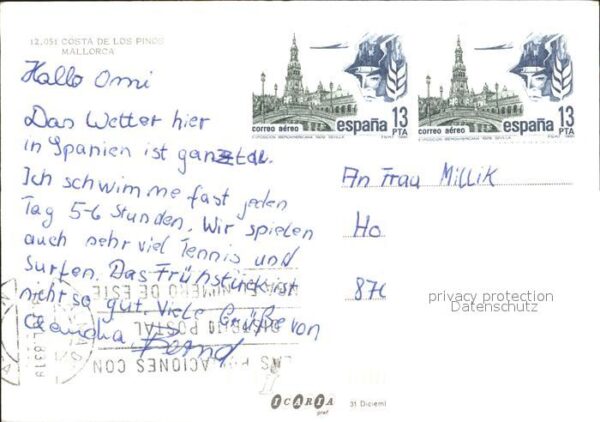 12.051 COSTA DE LOS PINOS
MALLORCA
Hallo Omi
Das Wetter hier
in Spanien ist ganz toll.
Ich schwimme fast jeden
Tag 5-6 Stunden. Wir spielen
auch sehr viel Tennis und
surfen. Das Frühstück ist
nicht so gut. Viele Grüße von
Claudia, Bernd
correo aéreo españa 13 PTA
EXPOSICION IBEROAMERICANA 1929. SEVILLA
correo aéreo españa 13 PTA
EXPOSICION IBEROAMERICANA 1929. SEVILLA
An Frau Millik
Ho
87
privacy protection
Datenschutz
NUMERO DE ESTE
POSTAL
LAS RECLAMACIONES CON
ICARIA
graf
31 Diciem